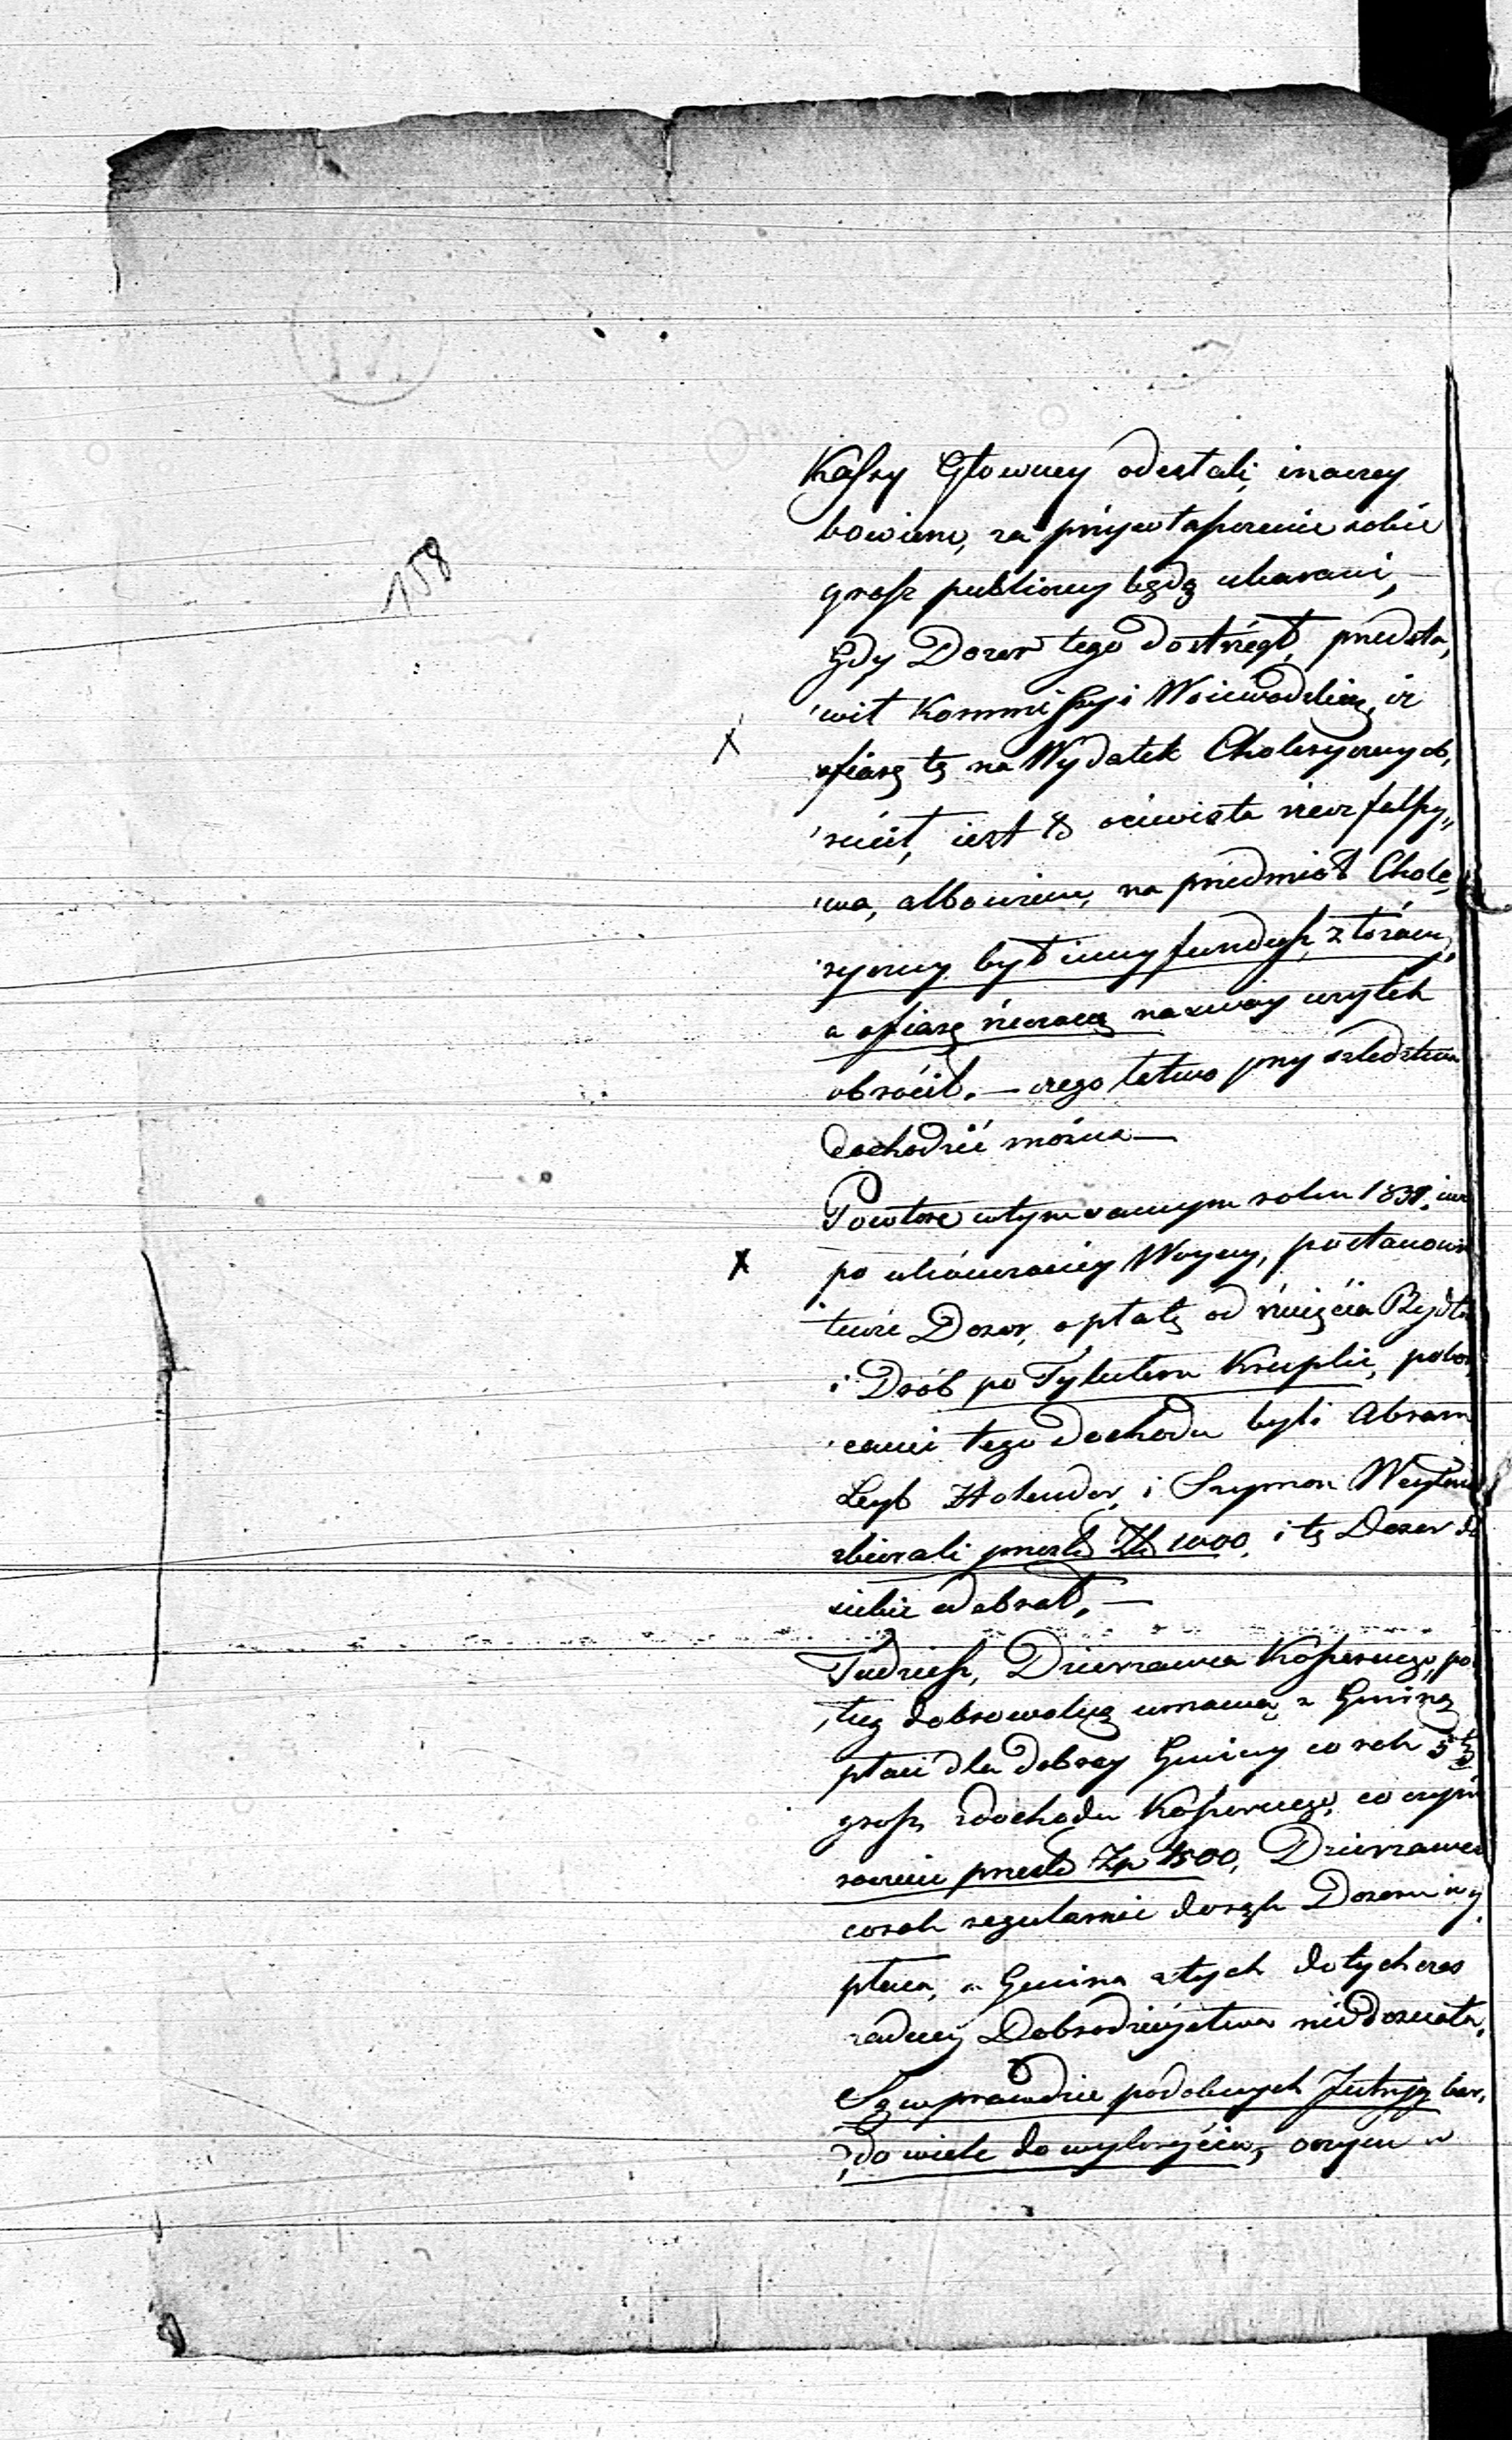 158
Kassy Głowney odestali, inaczey
bowiem, za przywłaszczenie sobie
grosz publiczny będą ukarani, —
Gdy Dozor tego dostrzegł, przedsta„
„wił Kommissyi Woiewodzkiey, iż
ofiarę tę na Wydatek Cholerycznych,
„rucił, iest to oczewista nierzetelny„
„wa, albowiem, na przedmiot Chole„
„ryczny był inny fundusz,
a ofiarę rzeczoną na swoy użytek
obrócił. — czego łatwo przy sledztwie
dochodzić można —
X
Powtore w tym samym roku 1831. iuż
po ukończoney Woyny, postanowi
X
„tenże Dozor, opłatę od rznięcia Bydła
i Drób po Tytułem Krupki, pobor„
„cami tego dochodu byli Abram
Leyb Holender, i Szymon
zbierali przeszło Zł 1000, i tę Dozor do
siebie odebrał. —
Tudzież, Dzierzawca Koszernego, po
„dług dobrowolną umową z Gminą
płaci dla dobrey Gminy co rok 5
grosz z dochodu Koszernego, co czyni
rocznie przeszło Zp 1500, Dzierzawca
corok regularnie do rąk Dozoru wy
płaca, a Gmina z tych dotychczas
zadney Dobrodzieystwa niedoznała,
Są wprawdzie podobnych Intryg bar„
„dzo wiele do wykrycia, o czym w